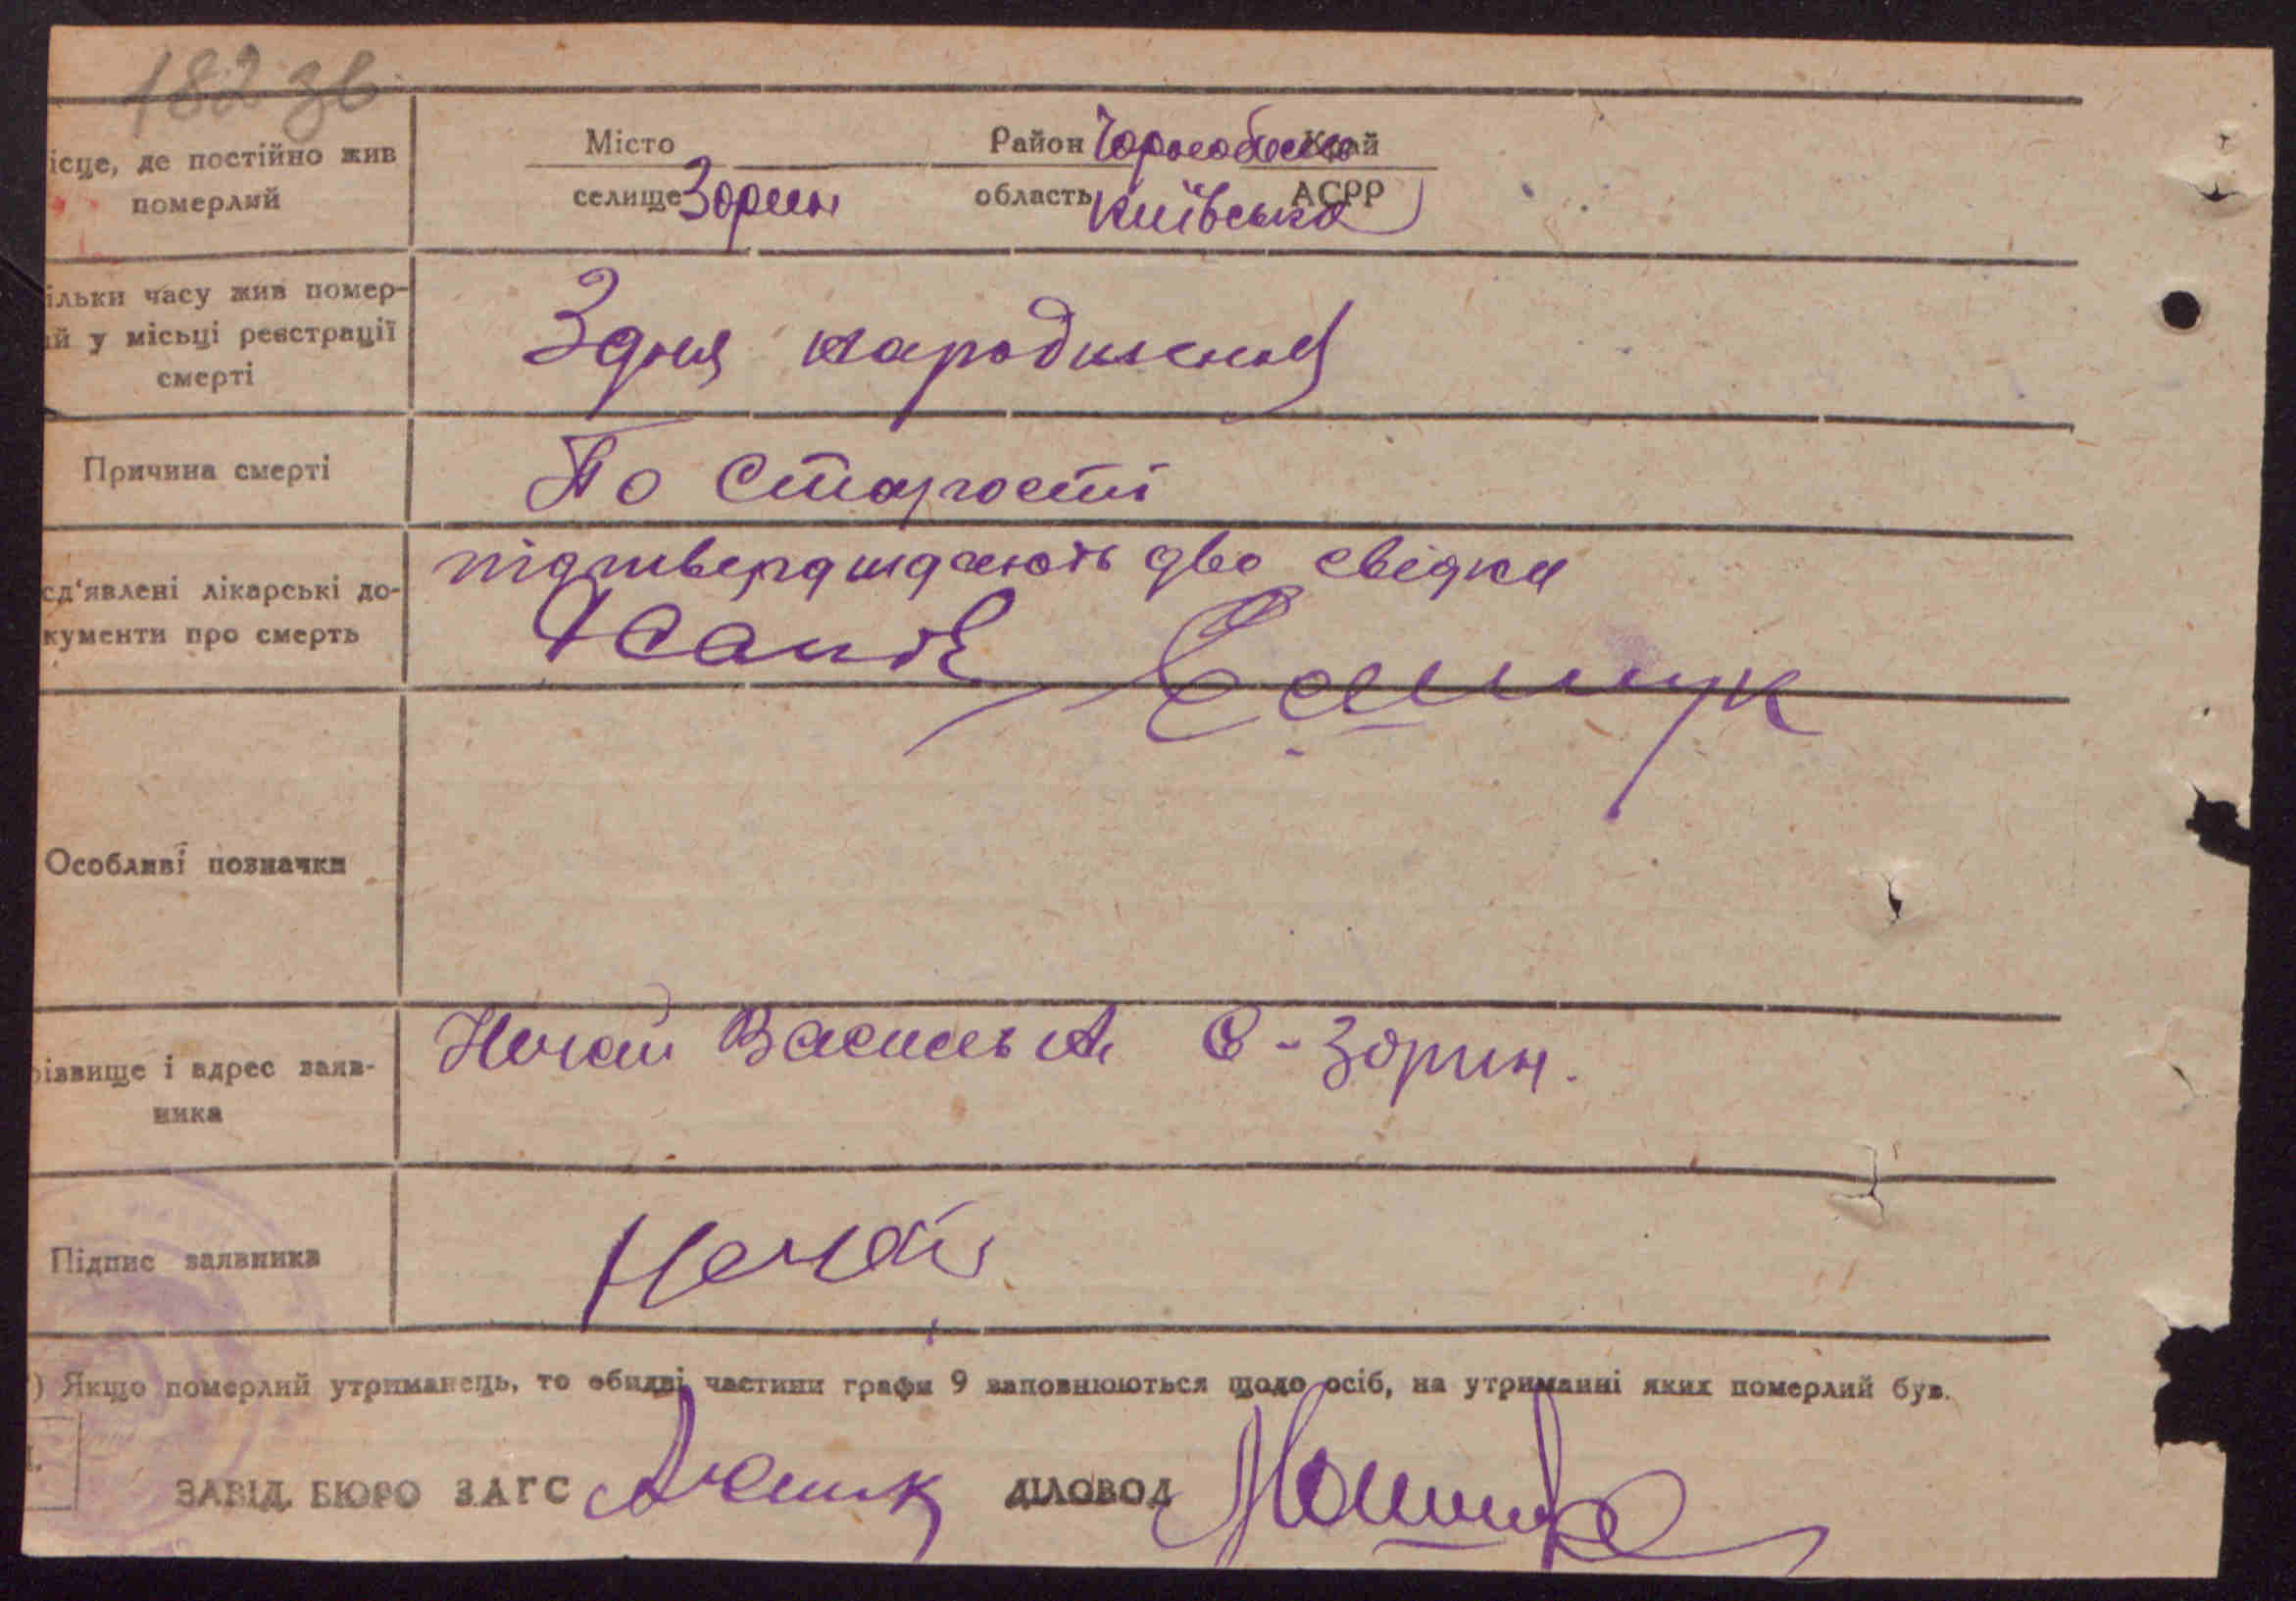 182 зв
ісце, де постійно жив
померлий
Місто
Район Чорнобиль Край
селище Зорин
область Київська АСРР
ільки часу жив помер-
ий у місьці реєстрації
смерті
З дня народження
Причина смерті
По старості
підтверджають два свідки
сд'явлені лікарські до-
кументи про смерть
Особливі позначки
різвище і адрес заяв-
ника
Нечай Василь А. с - Зорин.
Підпис заявника
Нечай
) Якщо померлий утриманець, то обидві частини графи 9 заповнюються щодо осіб, на утриманні яких померлий був.
ЗАВІД. БЮРО ЗАГС
ДІЛОВОД